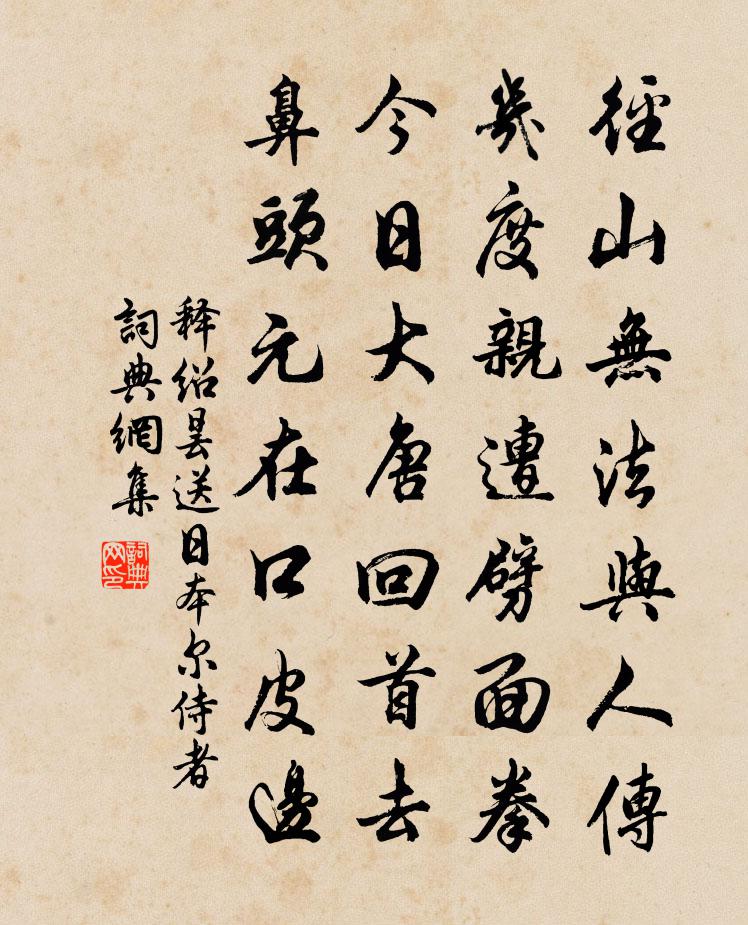 徑山無法與人傳
幾度親遭劈面拳
今日大唐回首去
鼻頭元在口皮邊
释紹曇送日本尔侍者
詞典網集
詞典网印